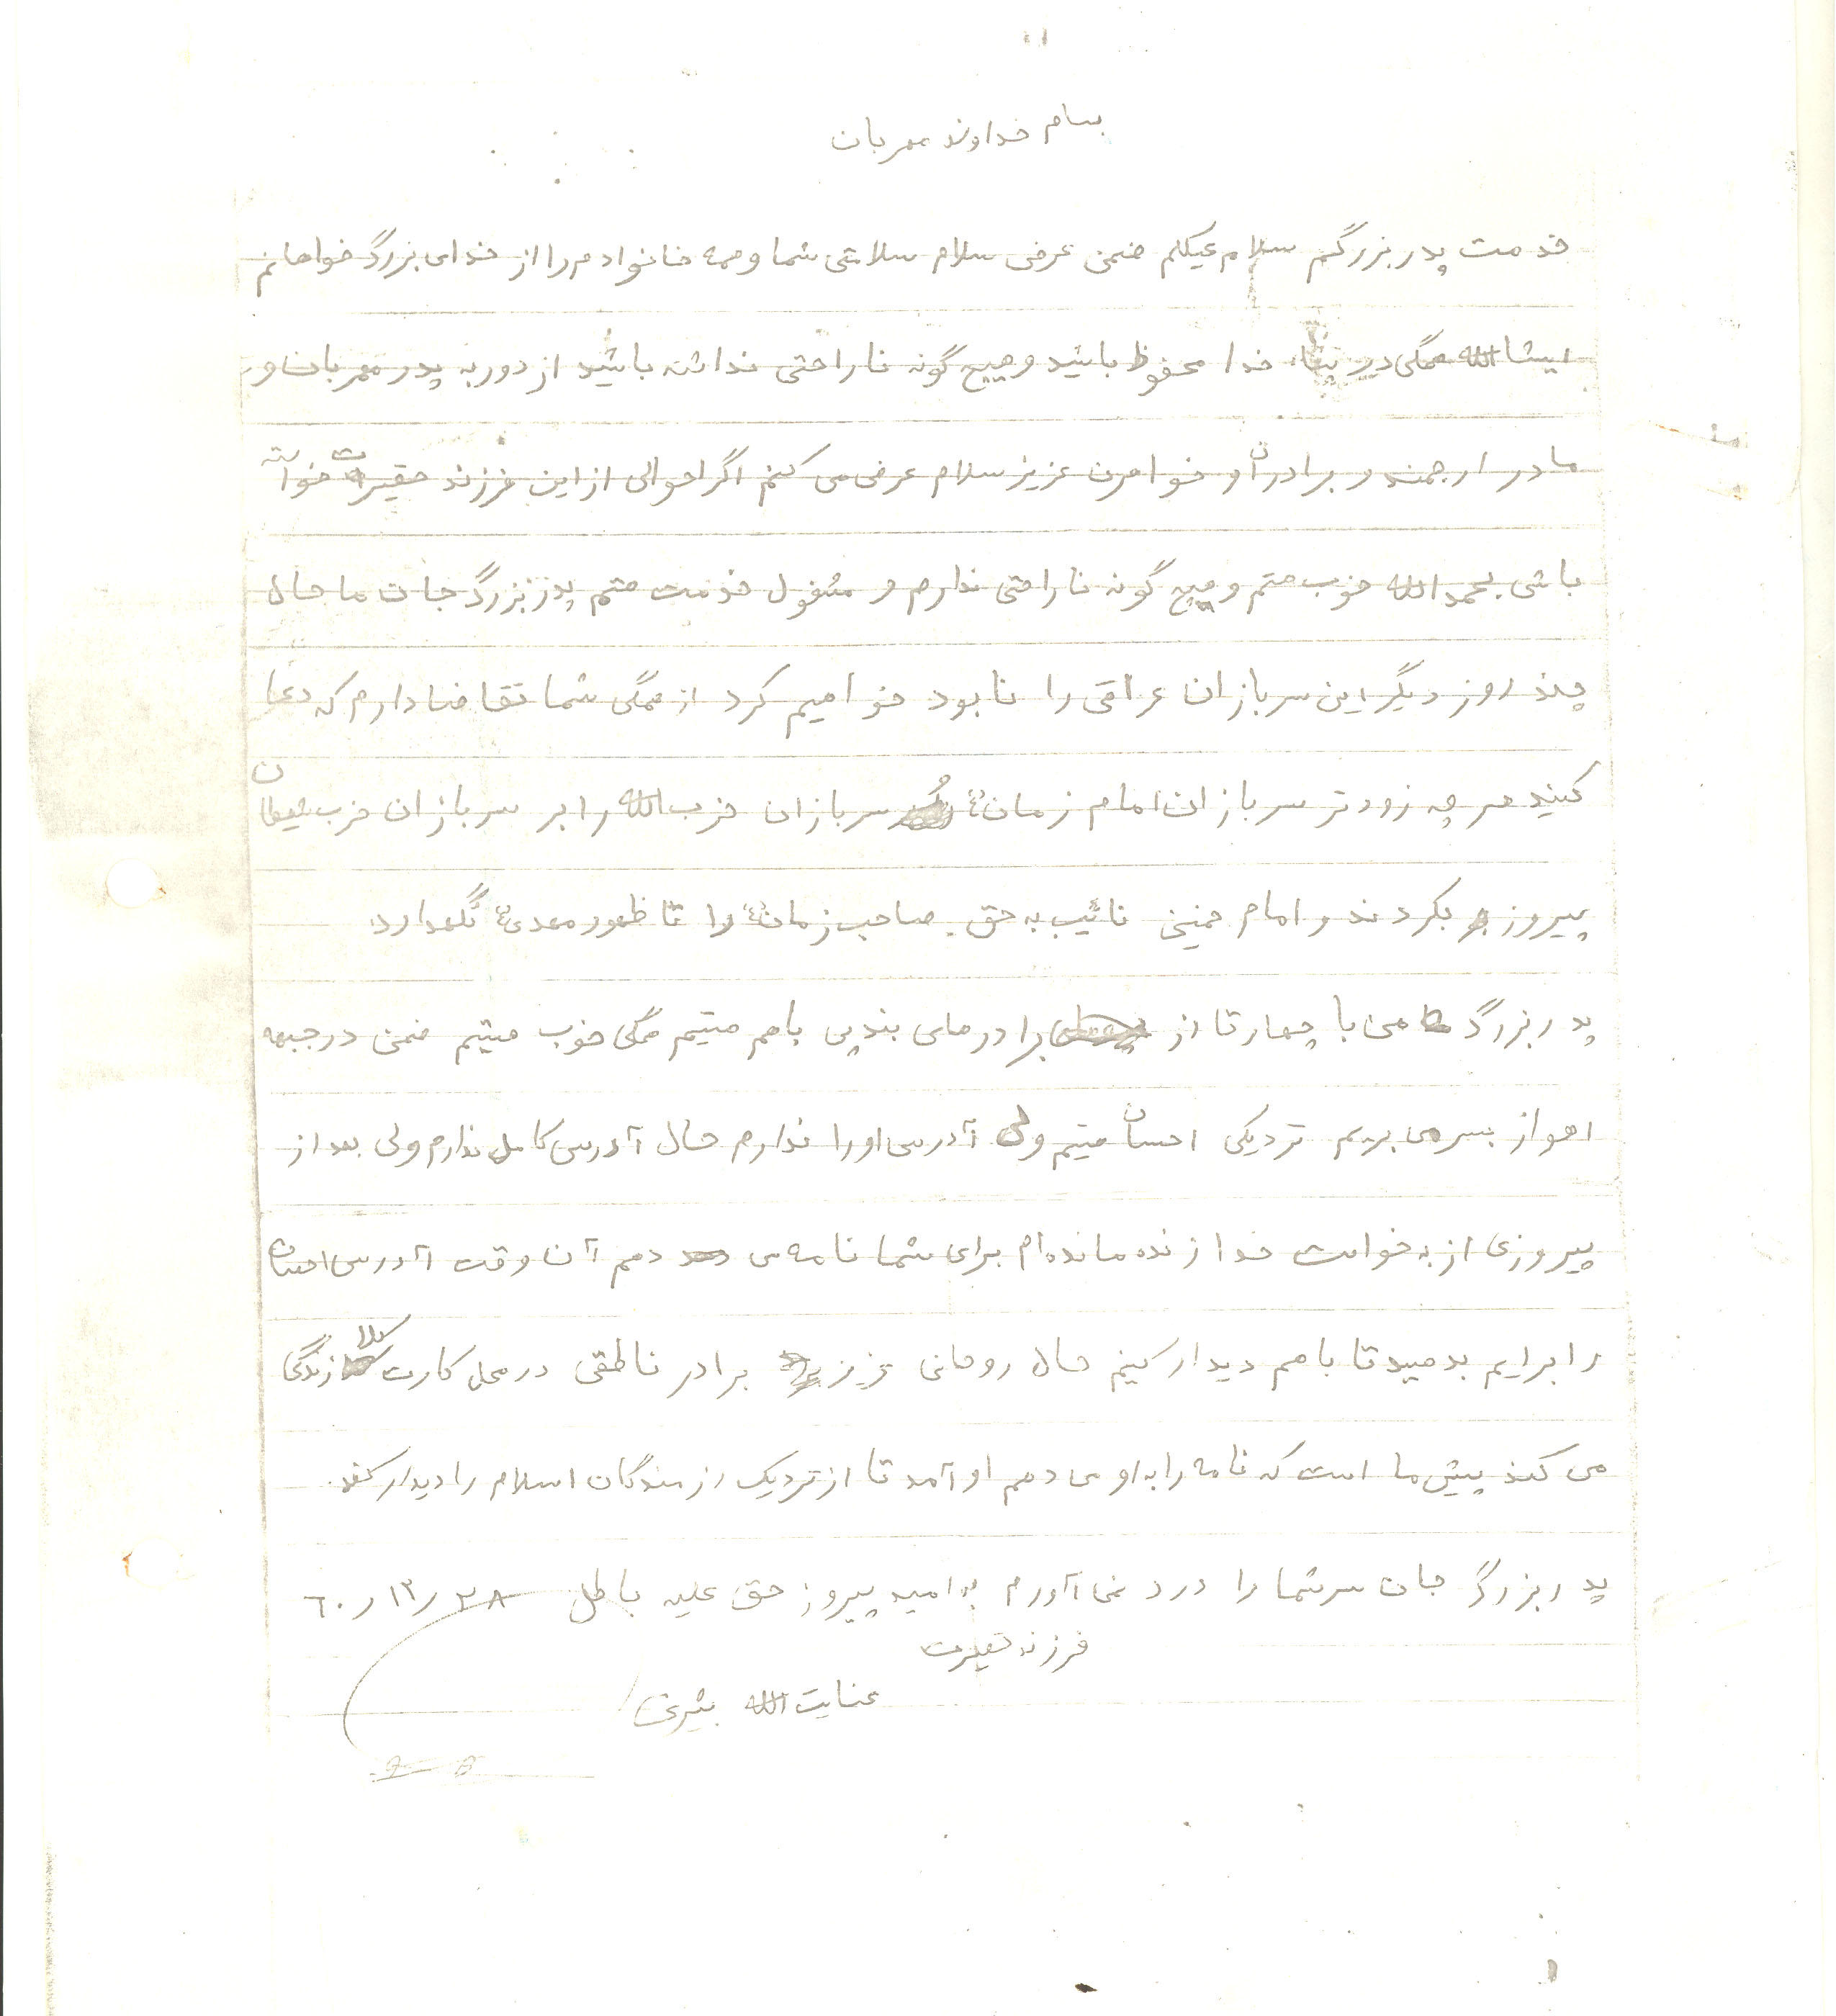 بسام خداوند مهربان
خدمت پدر بزرگم سلام عیلکم ضمن عرض سلام سلامتی شما و همه خانوادم را از خدای بزرگ خواهانم
ایشا الله همگی در پناه خدا محفوظ باشید و هیچ گونه ناراحتی نداشته باشید از دور به پدر مهربان و
مادر ارجمند و برادران و خواهرن عزیز سلام عرض می کنم اگر احوالی از این فرزند حقیرت خواسته
باشی بحمد الله خوب هستم و هیچ گونه ناراحتی ندارم و مشغول خدمت هستم پدر بزرگ جان ما حال
چند روز دیگر این سربازان عراقی را نابود خواهیم کرد از همگی شما تقاضا دارم که دعا
کنید هر چه زودتر سربازان امام زمان سربازان حزب الله را بر سربازان حزب شیطان
پیروز بگردند و امام خمینی نائیب به حق صاحب زمان را تا ظهور مهدی نگهدارد
پدر بزرگ من با چهار تا از برادرهای بندپی باهم هستیم همگی خوب هستیم ضمن در جبهه
اهواز بسر می بریم نزدیکی احسان هستیم ولی آدرس او را ندارم حال آدرس کامل ندارم ولی بعد از
پیروزی از به خواست خدا زنده مانده ام برای شما نامه می دهم آن وقت آدرس احسان
را برایم بدهید تا باهم دیدار کنیم حال روحانی عزیز برادر ناطقی در محل کارت کلا زندگی
می کند پیش ما است که نامه را به او می دهم او آمد تا از نزدیک رزمندگان اسلام را دیدار کند.
پدر بزرگ جان سر شما را درد نمی آورم به امید پیروز حق علیه باطل ۶۰/۱۲/۲۸
فرزند حقیرت
عنایت الله بشیری